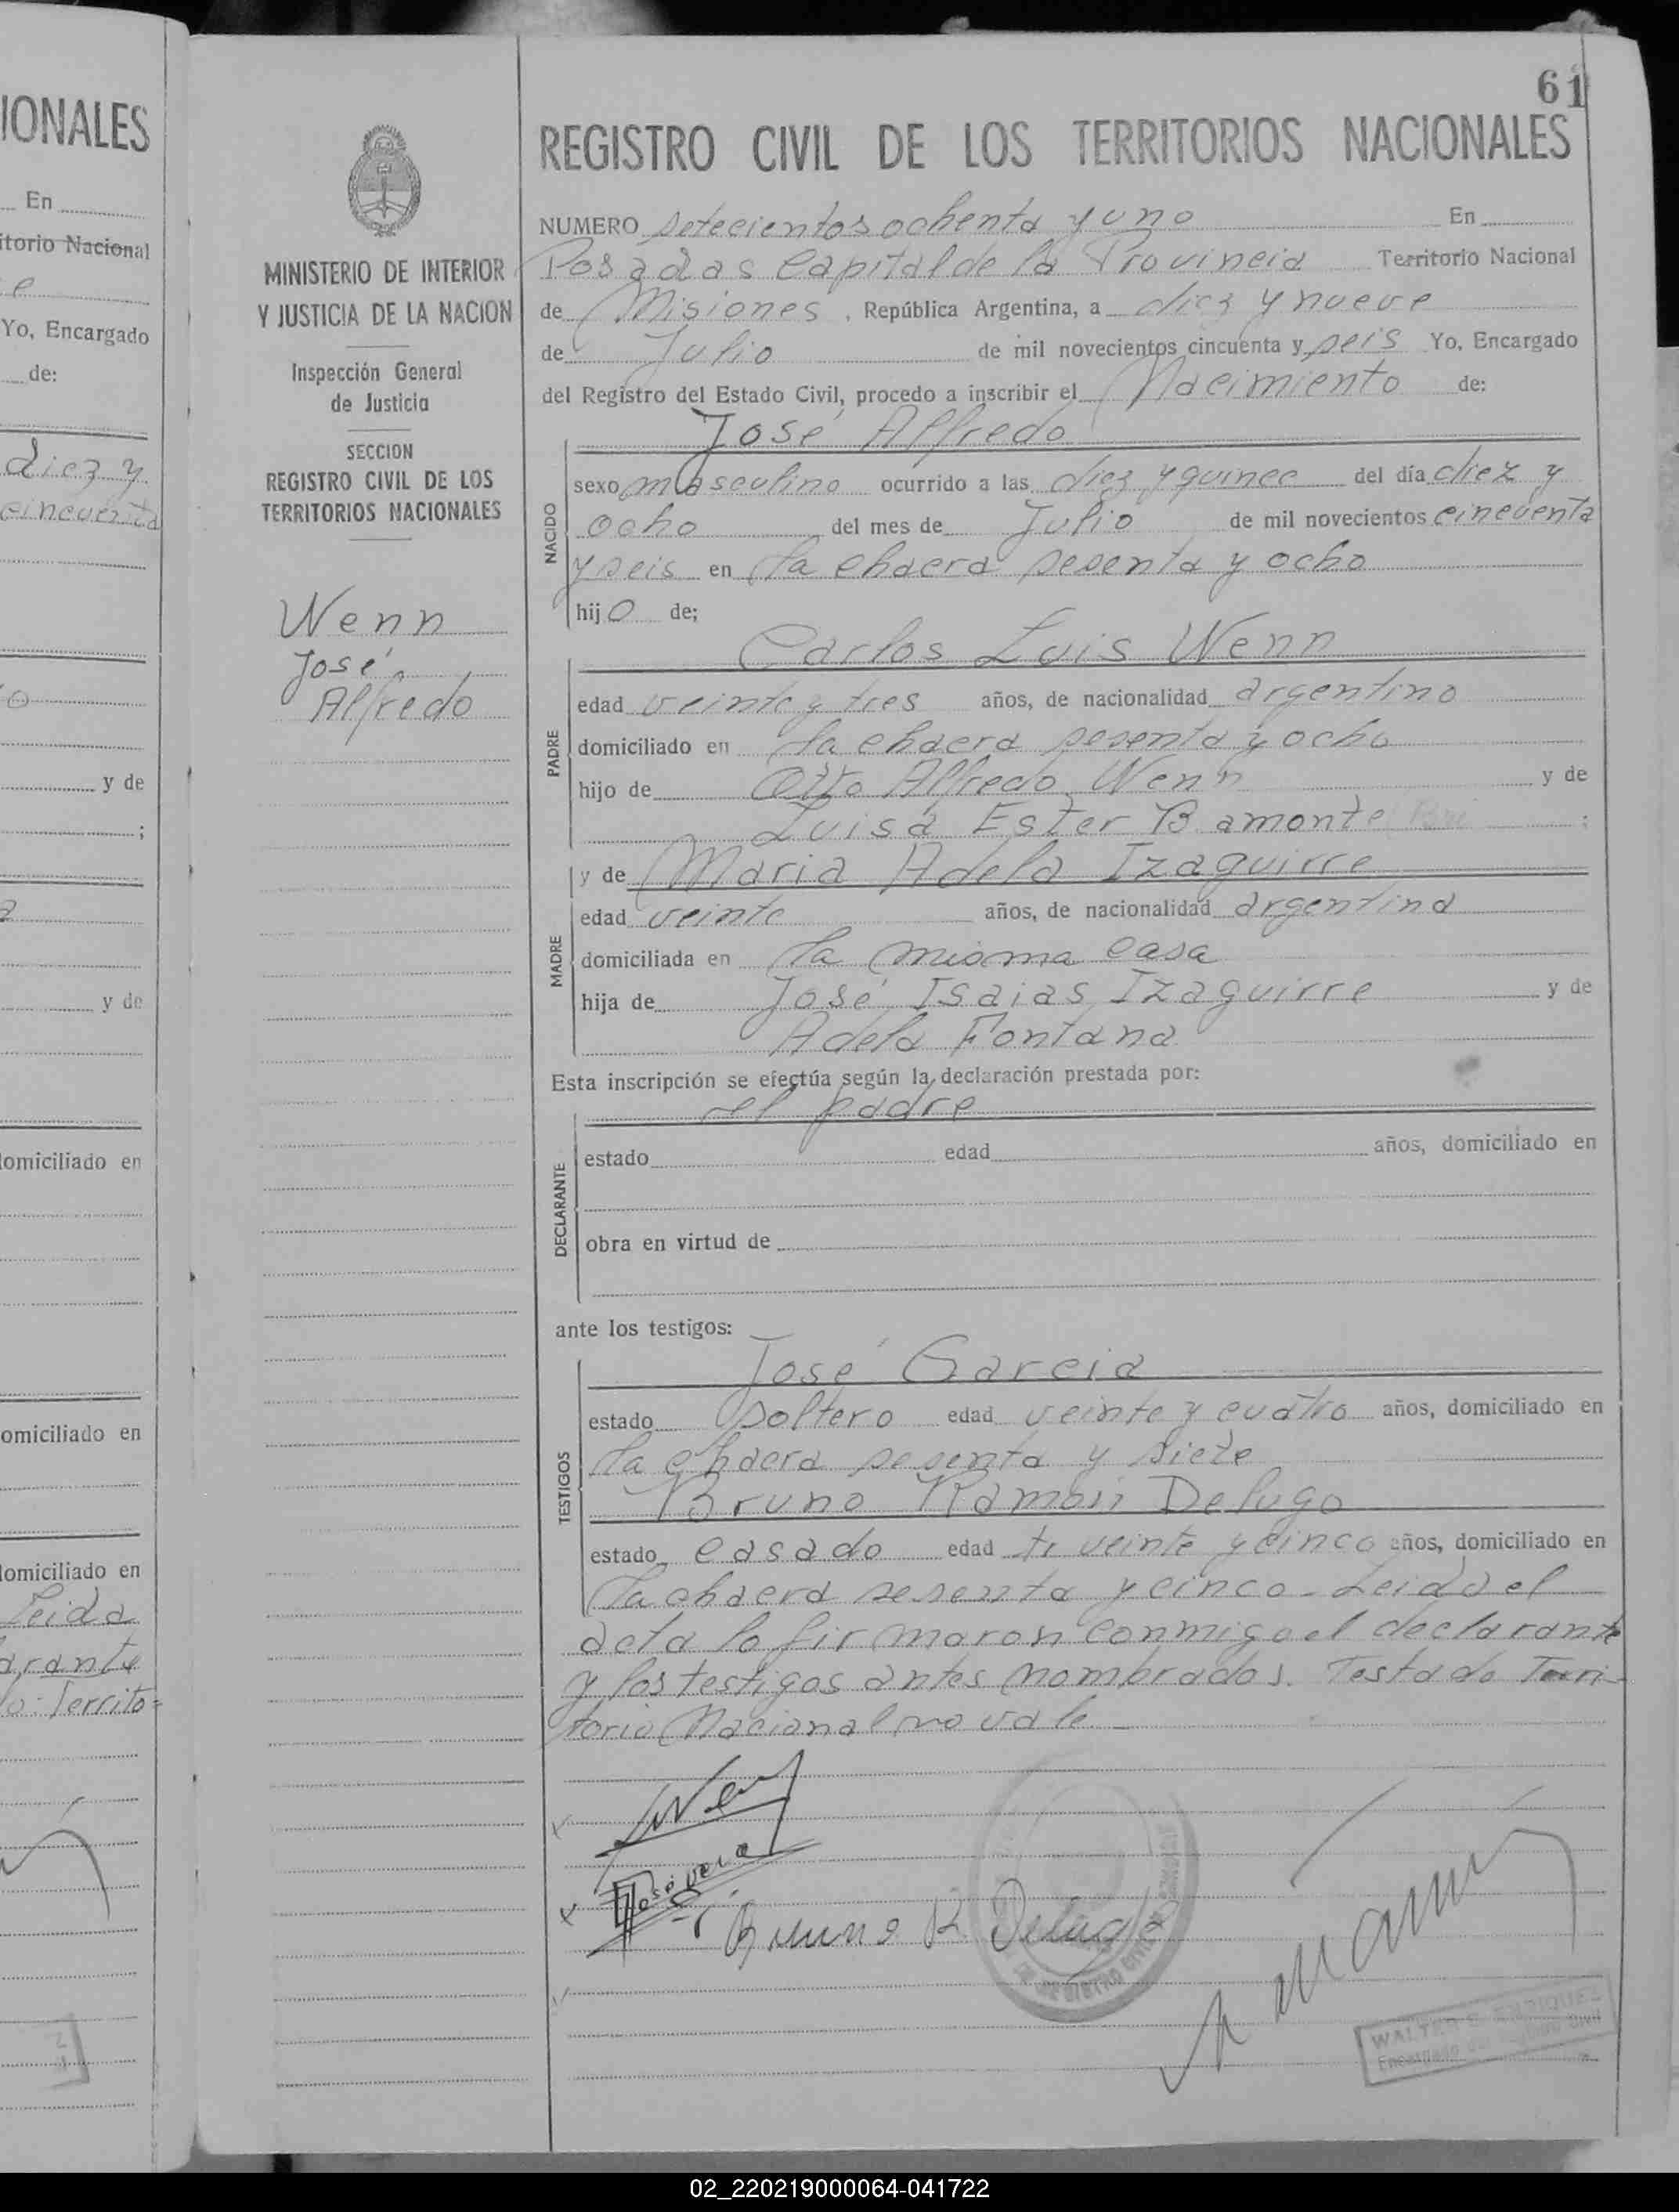 IONALES
En
itorio Nacional
e
Yo, Encargado
de:
diez y
cincuenta
y de
;
y de
domiciliado en
omiciliado en
domiciliado en
Leida
arante
o: Territo=
61
MINISTERIO DE INTERIOR
Y JUSTICIA DE LA NACION
Inspección General
de Justicia
SECCION
REGISTRO CIVIL DE LOS
TERRITORIOS NACIONALES
Wenn
José
Alfredo
REGISTRO CIVIL DE LOS TERRITORIOS NACIONALES
NUMERO setecientos ochenta y uno En
Posadas Capital de la Provincia Territorio Nacional
de Misiones, República Argentina, a diez y nueve
de Julio de mil novecientos cincuenta y seis Yo, Encargado
del Registro del Estado Civil, procedo a inscribir el Nacimiento de:
José Alfredo
NACIDO
sexo masculino ocurrido a las diez y quince del día diez y
ocho del mes de Julio de mil novecientos cincuenta
y seis en la chacra sesenta y ocho
hijo de;
Carlos Luis Wenn
PADRE
edad veinte y tres años, de nacionalidad argentino
domiciliado en la chacra sesenta y ocho
hijo de Otto Alfredo Wenn y de
Luisa Ester Bamonte ;
y de Maria Adela Izaguirre
MADRE
edad veinte años, de nacionalidad argentina
domiciliada en la misma casa
hija de José Isaias Izaguirre y de
Adela Fontana
Esta inscripción se efectúa según la declaración prestada por:
el padre
DECLARANTE
estado edad años, domiciliado en
obra en virtud de
ante los testigos:
José Garcia
TESTIGOS
estado soltero edad veinte y cuatro años, domiciliado en
la chacra sesenta y siete
Bruno Ramón Delugo
estado casado edad tr veinte y cinco años, domiciliado en
la chacra sesenta y cinco - Leida el
acta la firmaron conmigo el declarante
y los testigos antes nombrados. Testado Terri-
torio Nacional no vale
Wenn
José
Bruno R. Delugo
DE REGISTRO CIVIL
WALTER ENRIQUEZ
Encargado del Registro Civil
02_220219000064-041722